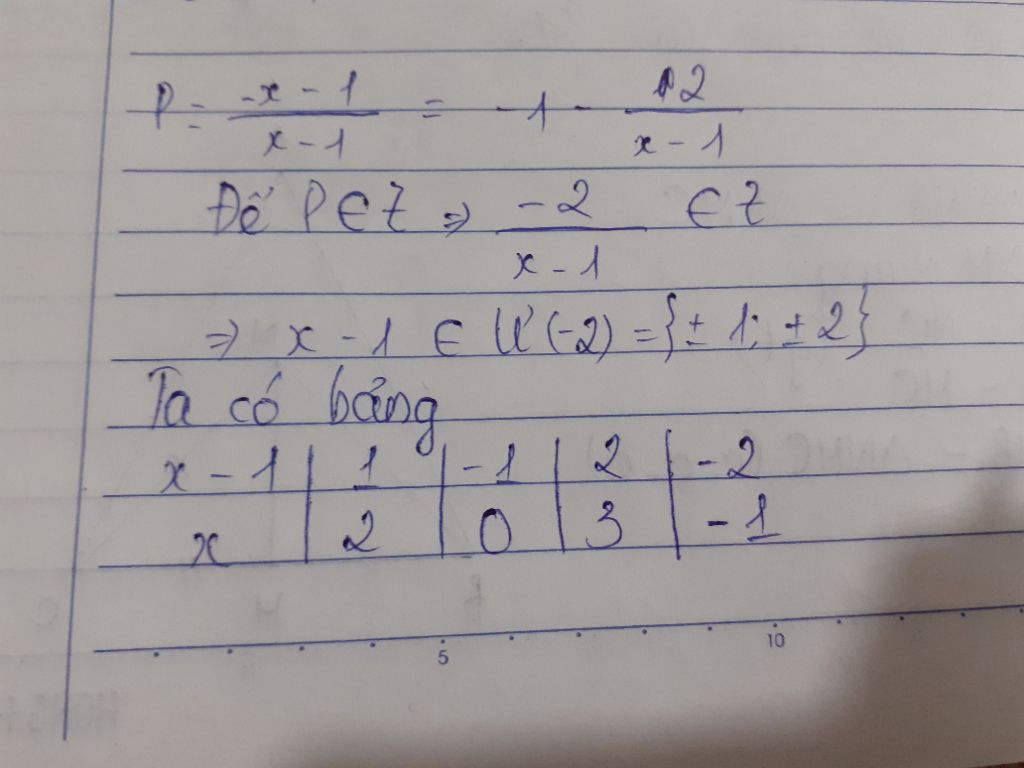 P = (-x - 1)/(x - 1) = -1 - 2/(x - 1)
Để P ∈ Z => (-2)/(x - 1) ∈ Z
=> x - 1 ∈ Ư(-2) = {± 1; ± 2}
Ta có bảng
x - 1 | 1 | -1 | 2 | -2
x | 2 | 0 | 3 | -1
5 10